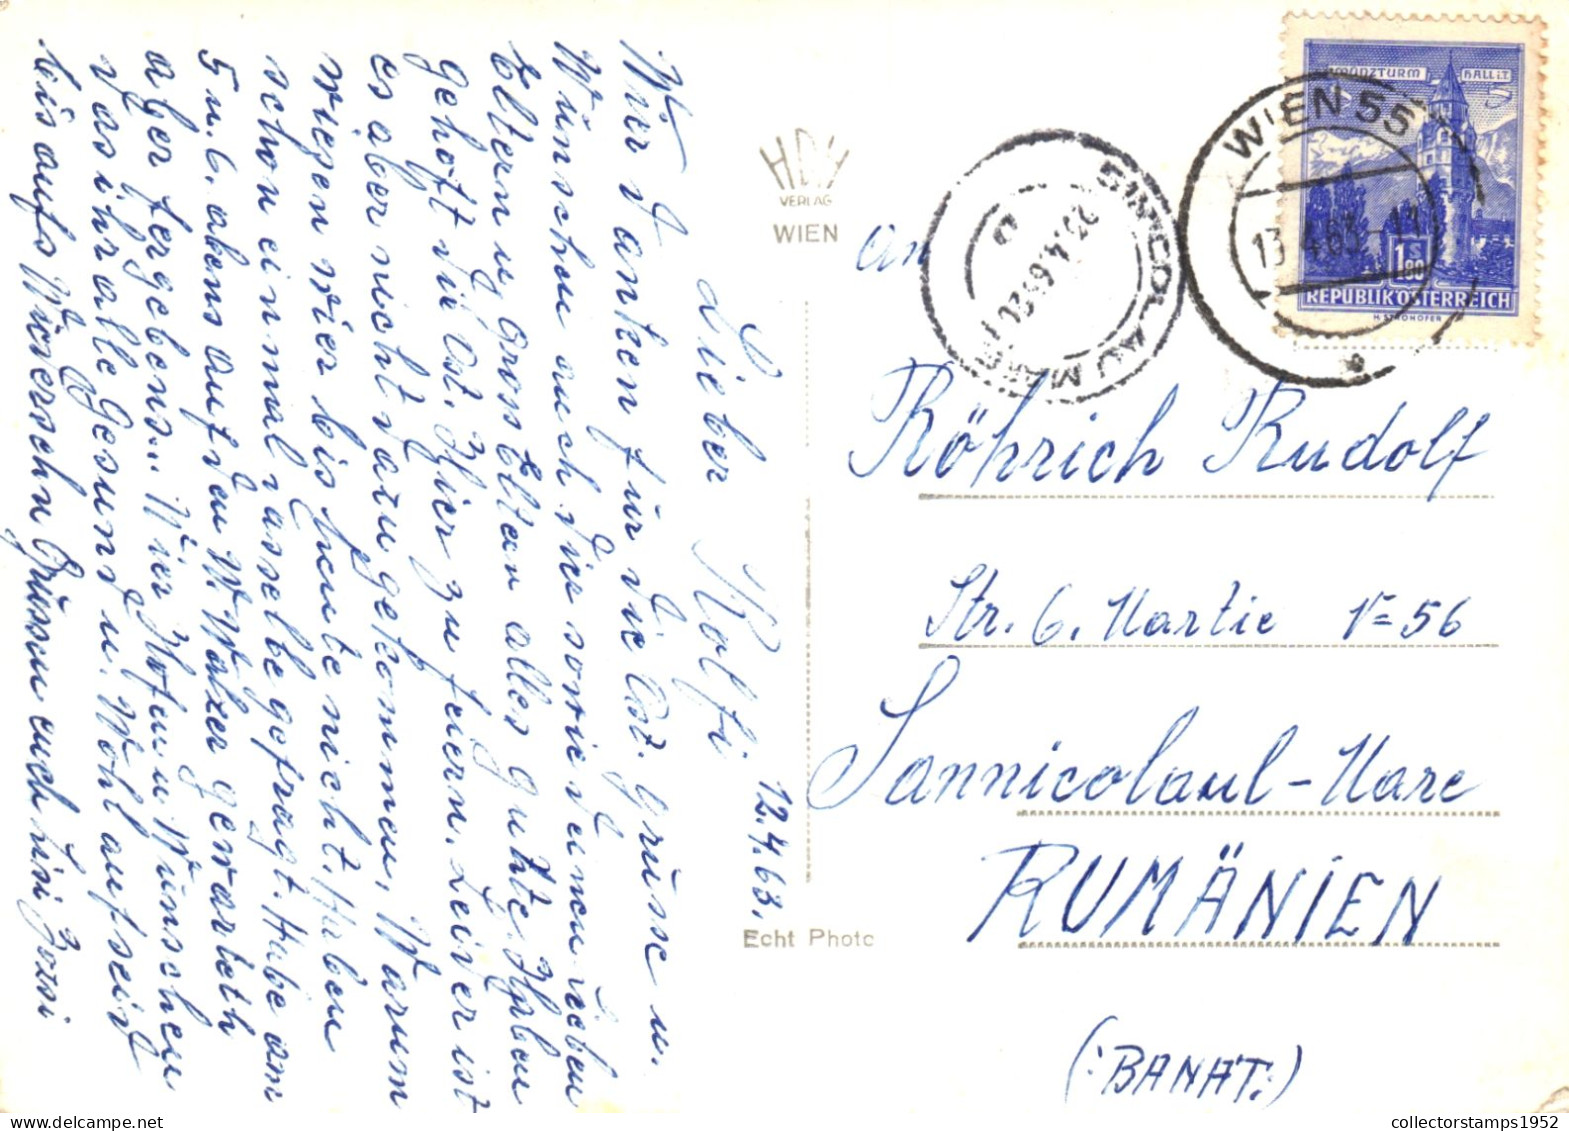 Lieber Rolfi
12.4.63.
Wir danken für die Ost. grüsse u.
Wünschen auch dir sowie deinen lieben
Eltern u. gross Eltern alles guhte. Haben
gehoft die Ost. Hier zu feiern. Leider ist
es aber nicht dazu gekommen, Warum
wiesen wier bis heute nicht. Haben
schon einmal dasselbe gefragt. Habe am
5 u. 6. abens auf den W. Walzer gewarteth
aber fergebens... Wier Hofen u Wünschen
das ihr alle Gesund u. Wohl auf seid
bis aufs Wiedersehn Grüssen euch Lisi Josi
HDH
VERLAG
WIEN
Echt Photo
SINICOLAU MARE
23.4.63
WIEN 55
13.4.63-11
MÜNZTURM
HALL i.T.
1 S 80
REPUBLIK ÖSTERREICH
H. STROHOFER
An
Röhrich Rudolf
Str. 6. Martie № 56
Sannicolaul-Mare
RUMÄNIEN
(:BANAT:)
collectorstamps1952